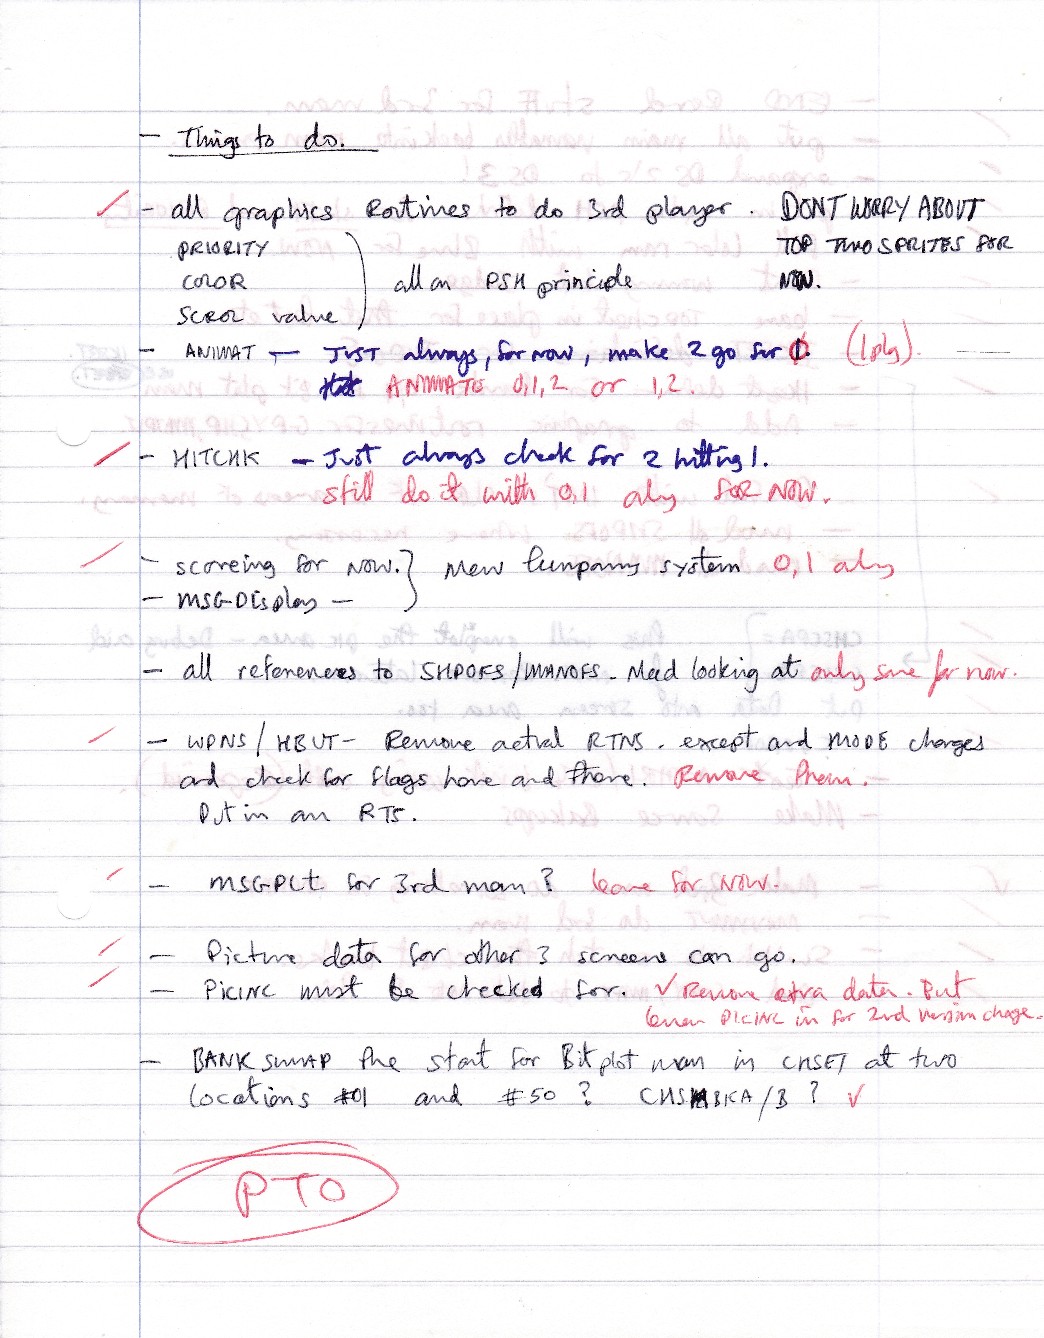 - Things to do.
- all graphics Routines to do 3rd player. DONT WORRY ABOUT
PRIORITY TOP TWO SPRITES FOR
COLOR all on PSH principle NOW.
SCROL value
- ANIMAT - JUST always, for now, make 2 go for 0. (1ply).
ANIMATS 0,1,2 or 1,2.
- HITCHK - Just always check for 2 hitting 1.
still do it with 0,1 only FOR NOW.
- scoreing for now. New system 0,1 only
- MSGDisplay -
- all references to SHPOFS/WANOFS. Need looking at only same for now.
- WPNS/HBUT - Remove actual RTNS. except and MODE changes
and check for flags here and there. Remove them.
Put in an RTS.
- MSGPLt for 3rd man? leave for NOW.
- Picture data for other 3 screens can go.
- PICINC must be checked for. ✓ Remove extra data. But
leave PICINC in for 2nd version change.
- BANK SWAP the start for Bitplot man in CHSET at two
locations #01 and #50? /B? ✓
PTO